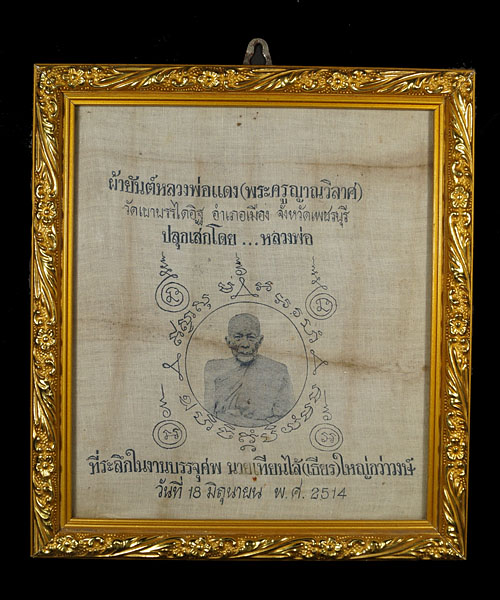 ผ้ายันต์หลวงพ่อแดง(พระครูญาณวิลาศ)
วัดเขาบรรไดอิฐ อำเภอเมือง จังหวัดเพชรบุรี
ปลุกเสกโดย...หลวงพ่อ
ที่ระลึกในงานบรรจุศพ นายเทียนไล้(เธียร)ใหญ่กว่าวงษ์
วันที่ 18 มิถุนายน พ.ศ. 2514